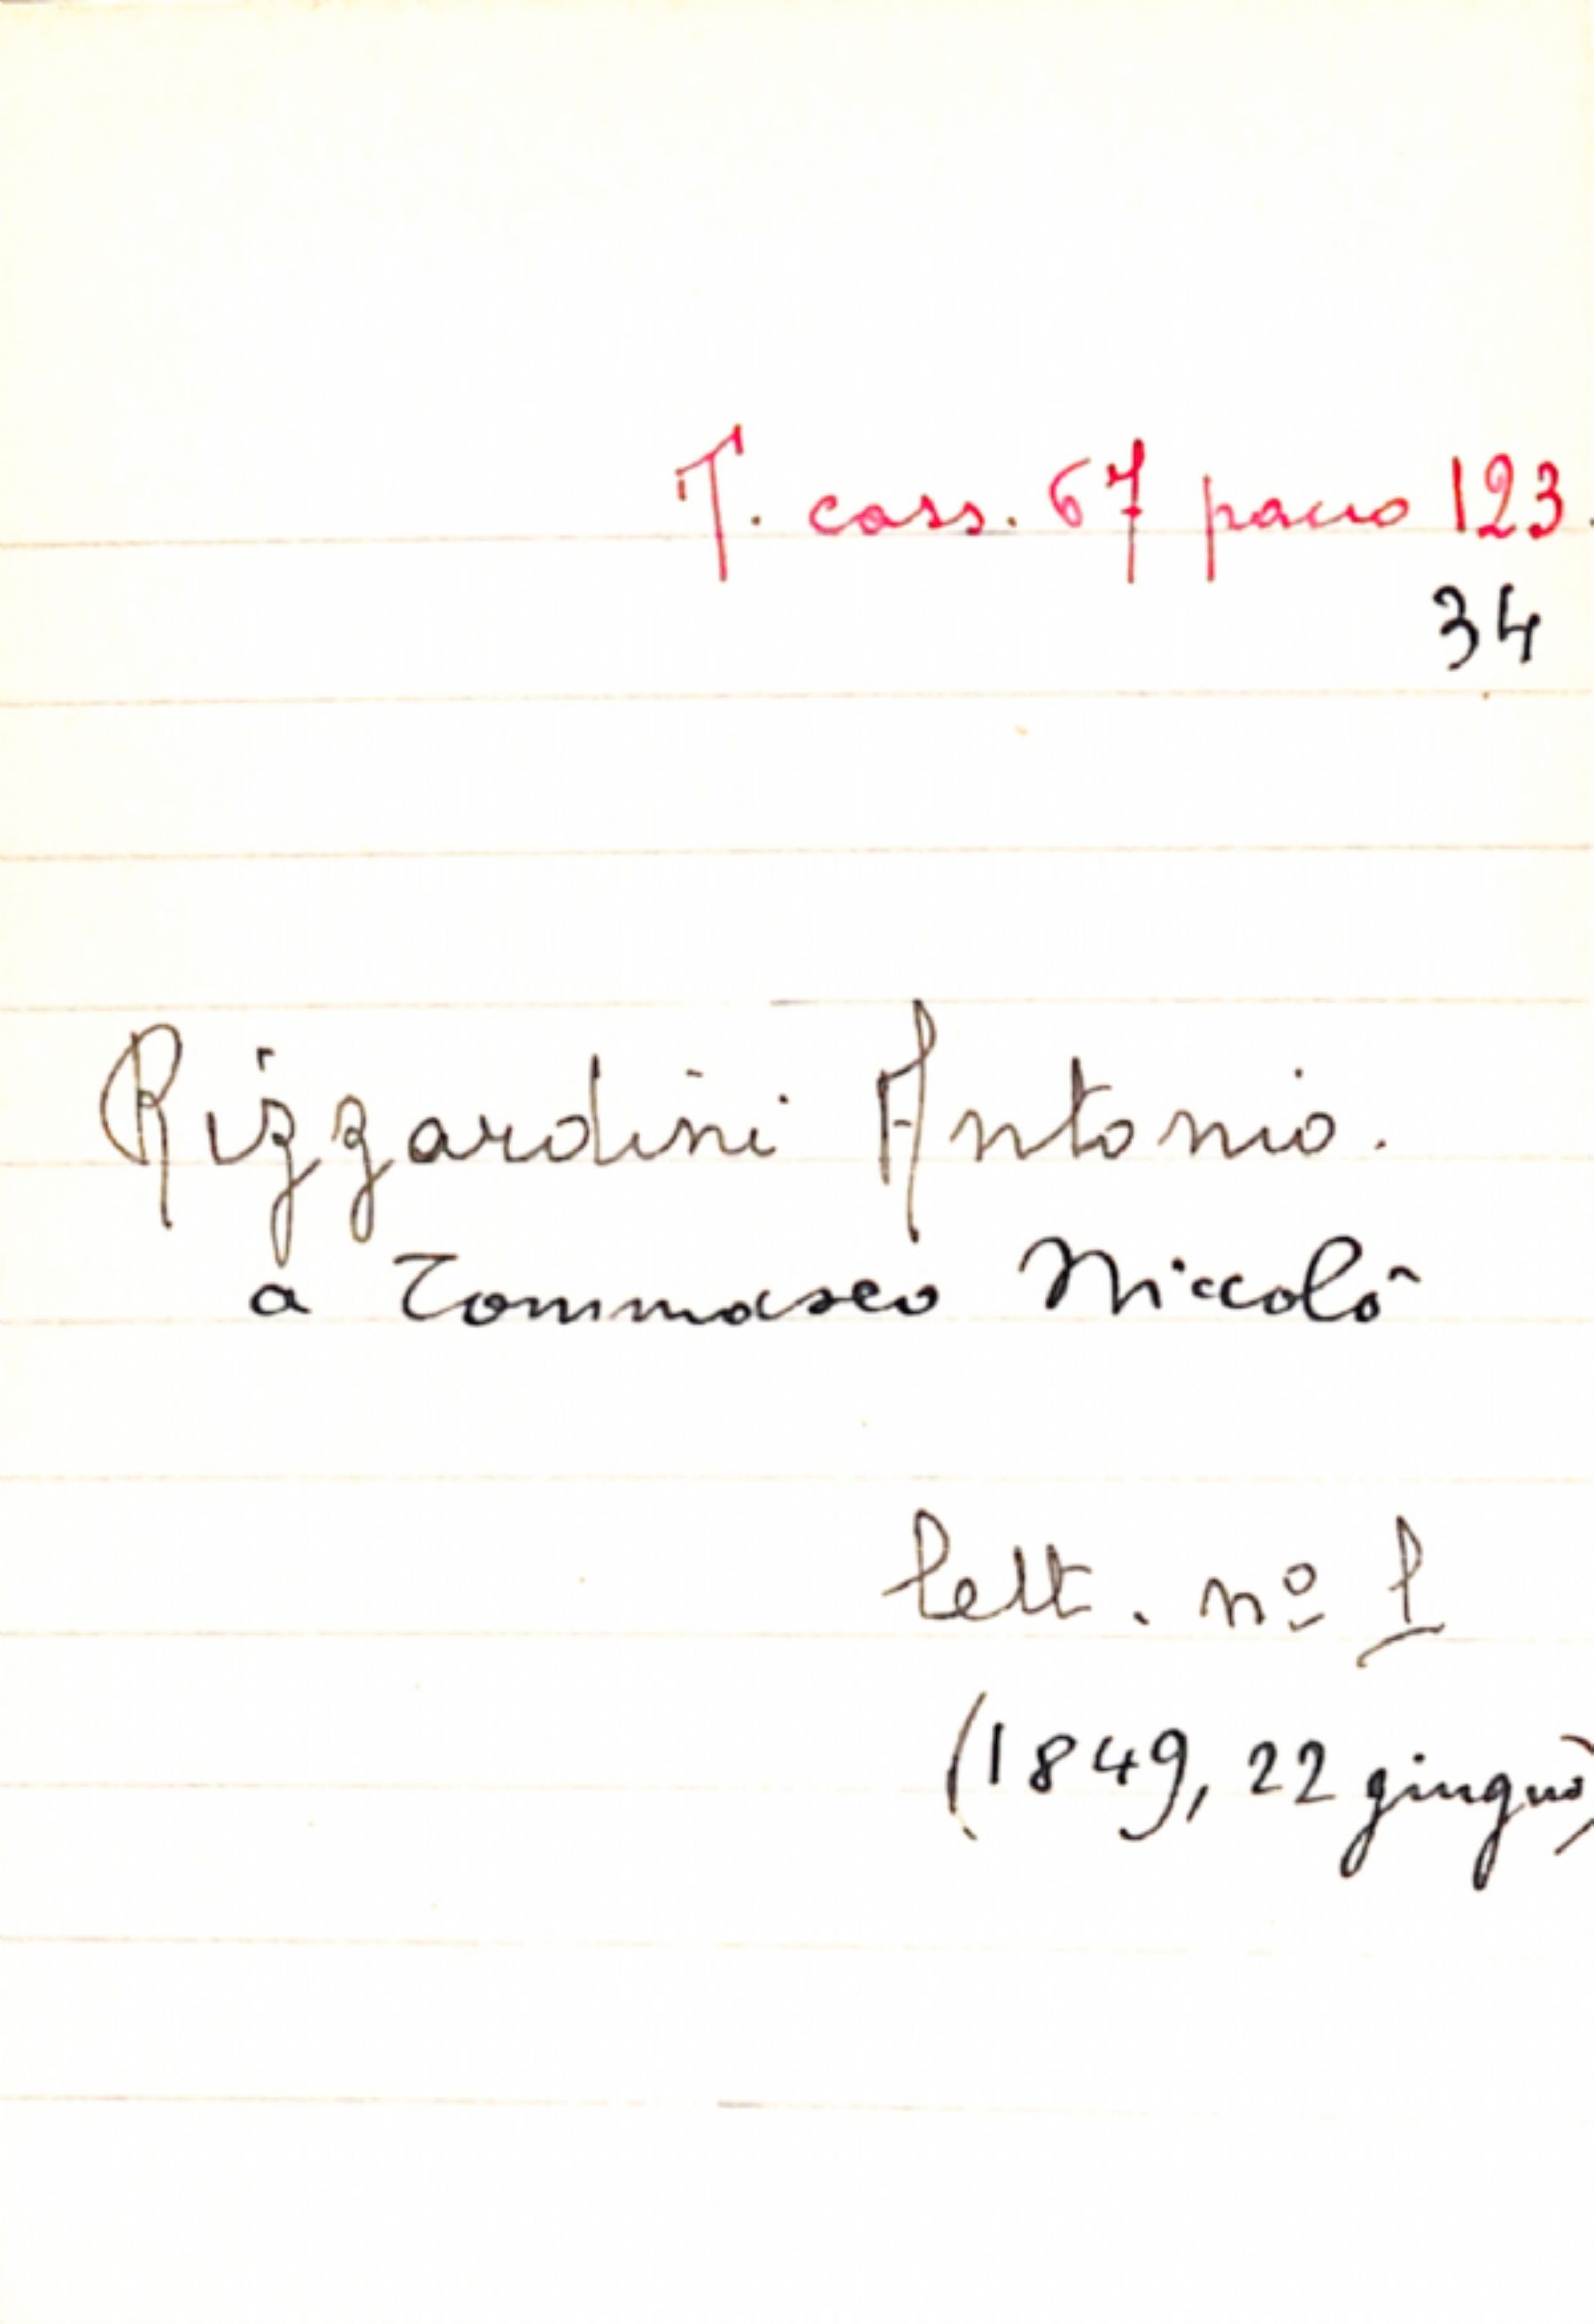 T. cass. 67 pacco 123.
34
Rizzardini Antonio.
a Tommaseo Niccolò
lett. nº 1
(1849, 22 giugno)